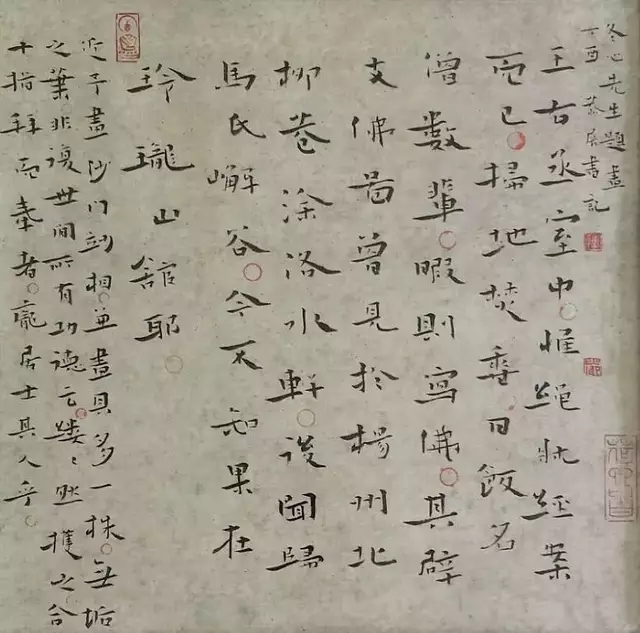 冬心先生題畫
丁酉
書記
王右丞室中惟繩牀經案
而已掃地焚香日飯名
僧數輩暇則寫佛其辟
支佛啚曾見於楊州北
柳巷涂洛水軒後聞歸
馬氏嶰谷今不知果在
玲瓏山舘耶
近予畫沙門相並畫貝多一株無垢
之葉非復世間所有功德云然獲之合
十指拜而奉者龐居士其人乎